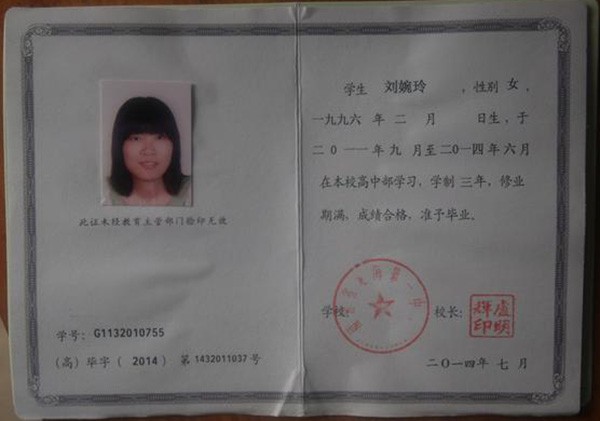 此证未经教育主管部门验印无效
学号: G1132010755
(高) 毕字 ( 2014 ) 第 1432011037 号
学生 刘婉玲 ,性别 女,
一九九六 年 二 月 日生,于
二0一一年 九 月至二0一四年 六 月
在本校高中部学习,学制 三年,修业
期满,成绩合格,准予毕业。
学校: 校长:
卢明
印
二0一四年 七 月